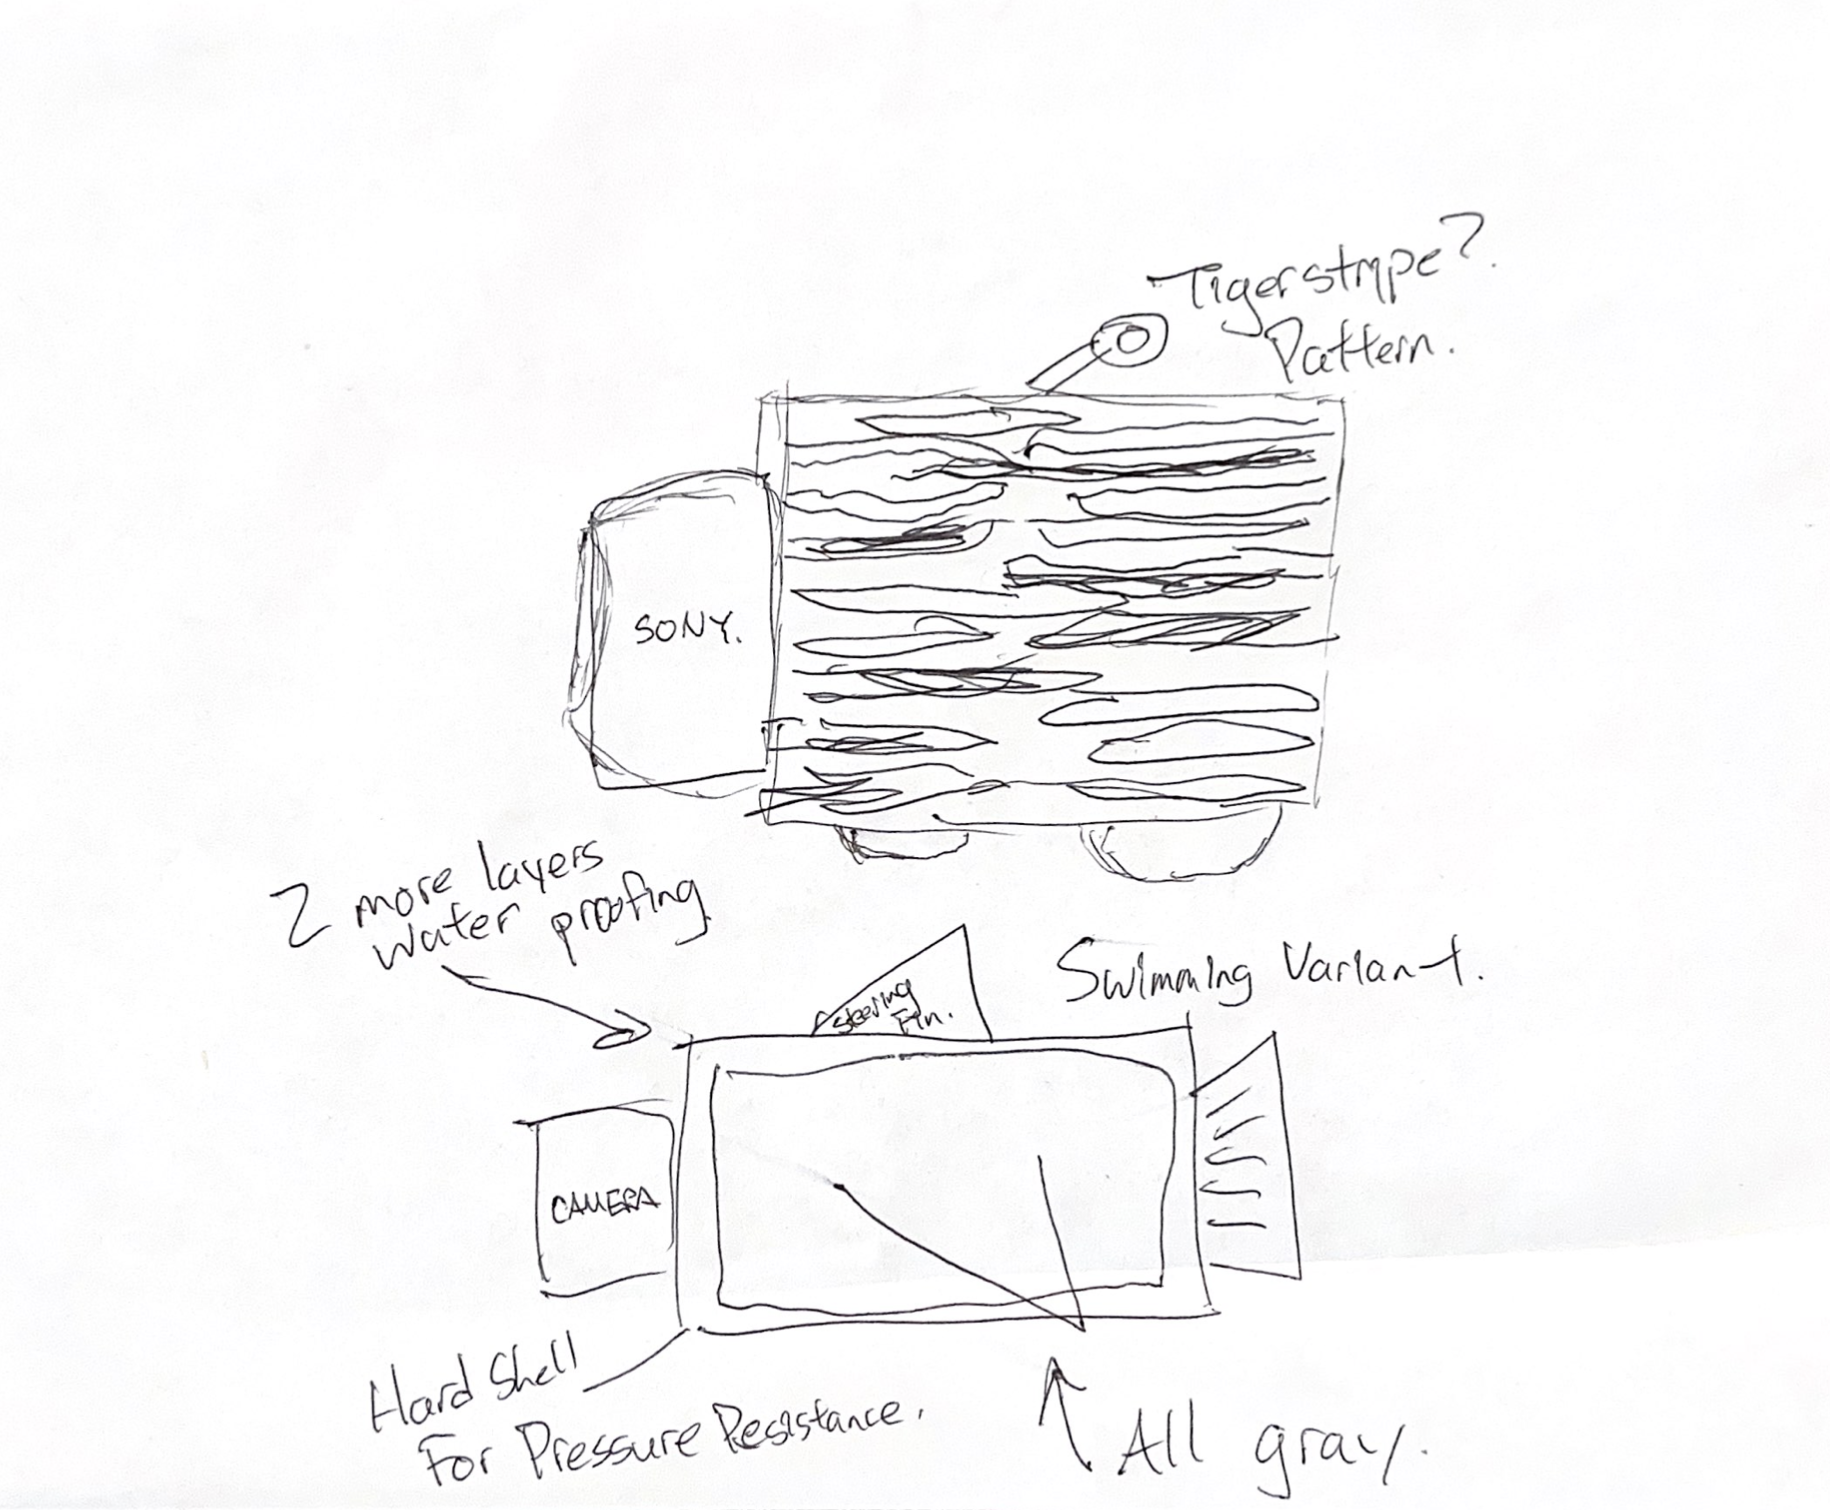 Tigerstripe?
Pattern.
SONY.
2 more layers
water proofing
Swimming Variant.
Steering
Fin.
CAMERA
Hard Shell
For Pressure Resistance.
All gray.